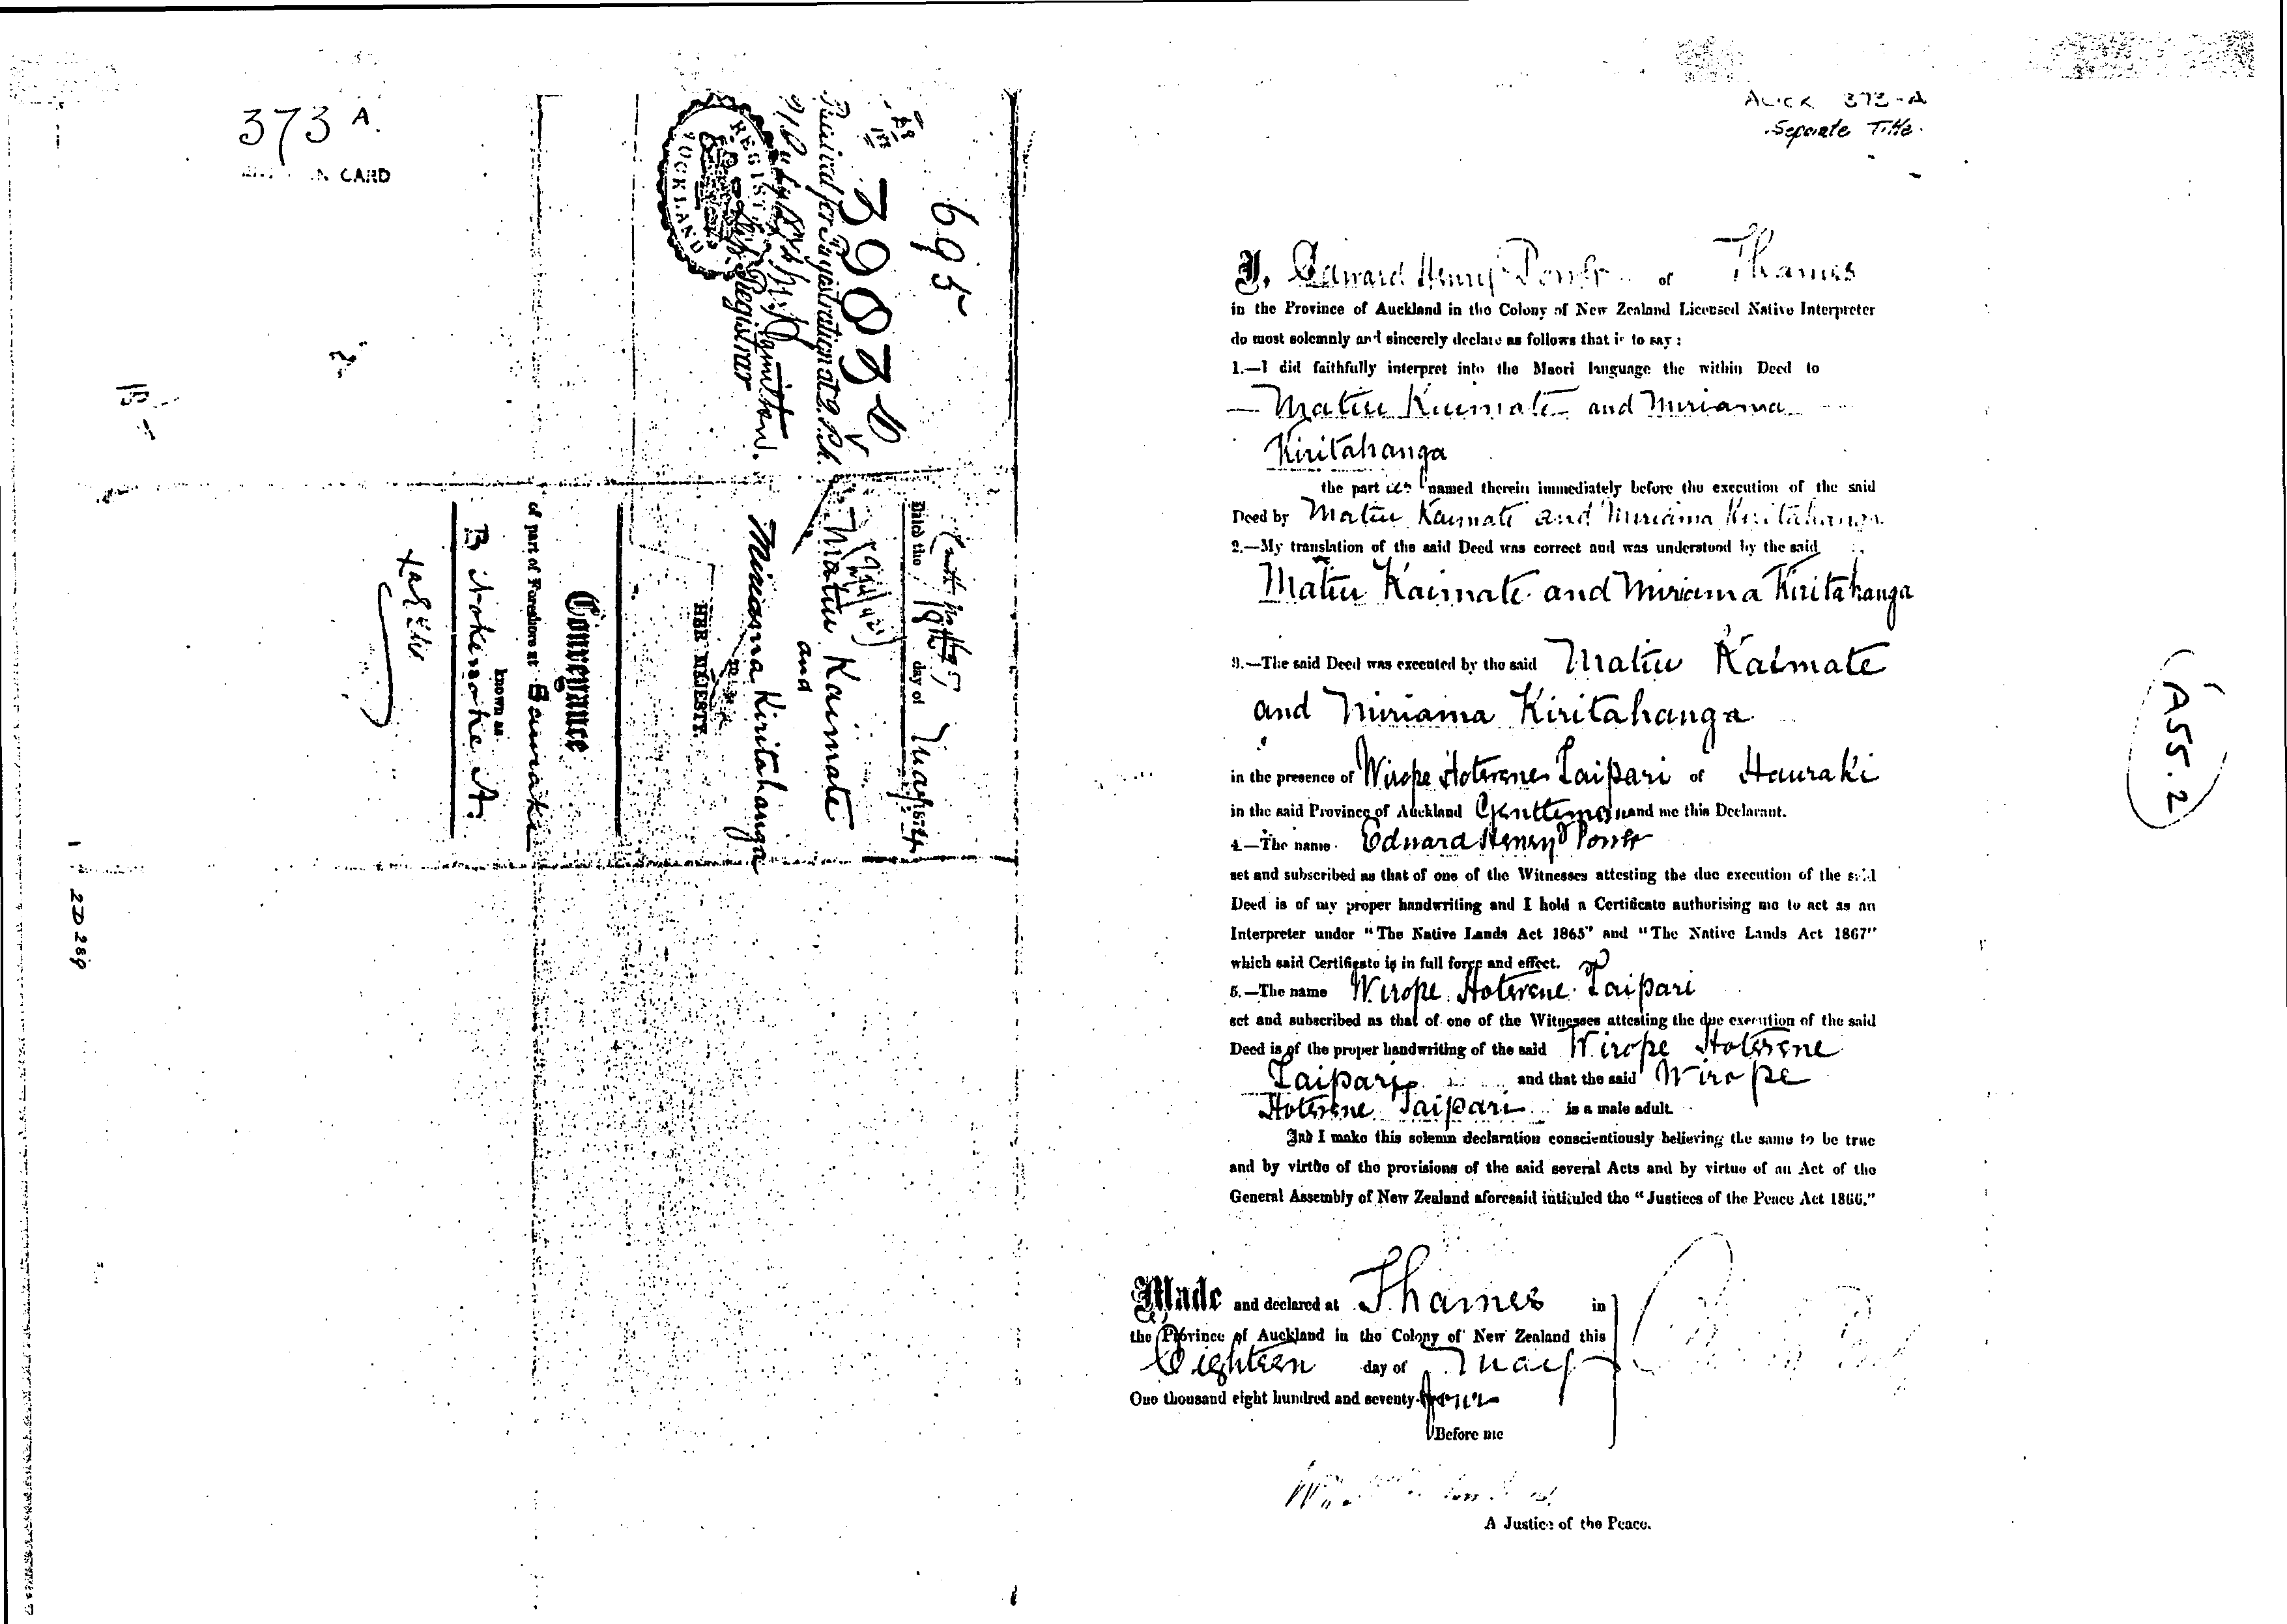 373 A.
CARD
695
39830
Received for Registration at 2 P.M.
Registrar
REGIST
AUCKLAND
Dated the 19th day of May 1874
Matiu Kaimate
and
Miriama Kiritahanga
to
HER MAJESTY.
Conveyance
of part of Foreshore at Hauraki
known as
B Nokenoke A.
2D 289
AUCK 373-A
Separate Title.
I, Edward Henry of Thames
in the Province of Auckland in the Colony of New Zealand Licensed Native Interpreter
do most solemnly and sincerely declare as follows that is to say:
1.—I did faithfully interpret into the Maori language the within Deed to
Matiu Kaimate and Miriama
Kiritahanga
the parties named therein immediately before the execution of the said
Deed by Matiu Kaimate and Miriama Kiritahanga
2.—My translation of the said Deed was correct and was understood by the said
Matiu Kaimate and Miriama Kiritahanga
3.—The said Deed was executed by the said Matiu Kaimate
and Miriama Kiritahanga
in the presence of Wirope Hoterene Taipari of Hauraki
in the said Province of Auckland Gentleman and me this Declarant.
4.—The name Edward Henry
set and subscribed as that of one of the Witnesses attesting the due execution of the said
Deed is of my proper handwriting and I hold a Certificate authorising me to act as an
Interpreter under "The Native Lands Act 1865" and "The Native Lands Act 1867"
which said Certificate is in full force and effect.
5.—The name Wirope Hoterene Taipari
set and subscribed as that of one of the Witnesses attesting the due execution of the said
Deed is of the proper handwriting of the said Wirope Hoterene
Taipari and that the said Wirope
Hoterene Taipari is a male adult.
And I make this solemn declaration conscientiously believing the same to be true
and by virtue of the provisions of the said several Acts and by virtue of an Act of the
General Assembly of New Zealand aforesaid intituled the "Justices of the Peace Act 1866."
Made and declared at Thames in
the Province of Auckland in the Colony of New Zealand this
Eighteen day of May
One thousand eight hundred and seventy-four
Before me
A Justice of the Peace.
A55.2